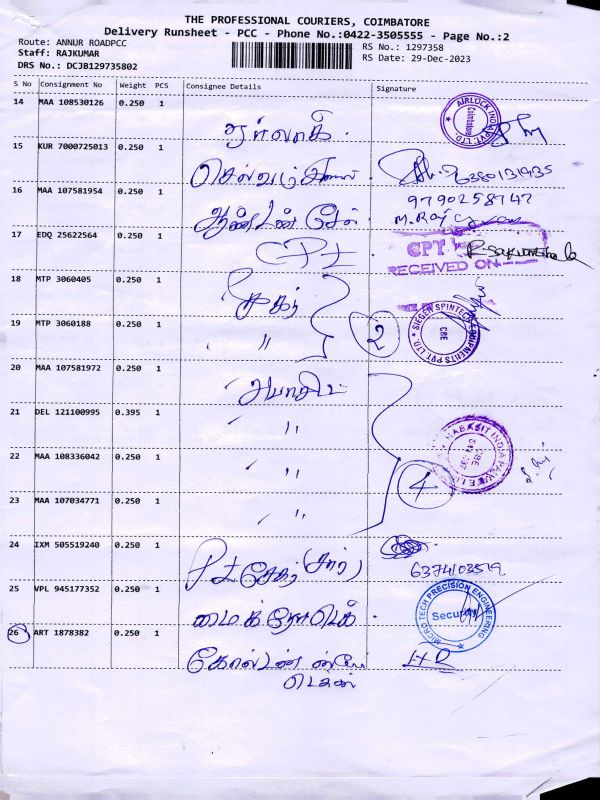 THE PROFESSIONAL COURIERS, COIMBATORE
Delivery Runsheet - PCC - Phone No.:0422-3505555 - Page No.:2
Route: ANNUR ROADPCC
RS No.: 1297358
Staff: RAJKUMAR
RS Date: 29-Dec-2023
DRS No.: DCJB129735802
S No Consignment No Weight PCS Consignee Details Signature
14 MAA 108530126 0.250 1
AIRLOCK INDIA PVT. LTD. Coimbatore
15 KUR 7000725013 0.250 1
செல்வம்
6380131935
16 MAA 107581954 0.250 1
9790258747
M. Raj
17 EDQ 25622564 0.250 1
CPT
CPT
RECEIVED ON
18 MTP 3060405 0.250 1
சுகர்
2
SIEGER SPINTECH EQUIPMENTS PVT. LTD. CBE
19 MTP 3060188 0.250 1
"
20 MAA 107581972 0.250 1
21 DEL 121100995 0.395 1
"
HABASIT INDIA
22 MAA 108336042 0.250 1
"
4
23 MAA 107034771 0.250 1
"
24 IXM 505519240 0.250 1
6374103519
25 VPL 945177352 0.250 1
மைக்ரோடெக்
MICRO TECH PRECISION ENGINEERING Security
26 ART 1878382 0.250 1
கோல்டன்